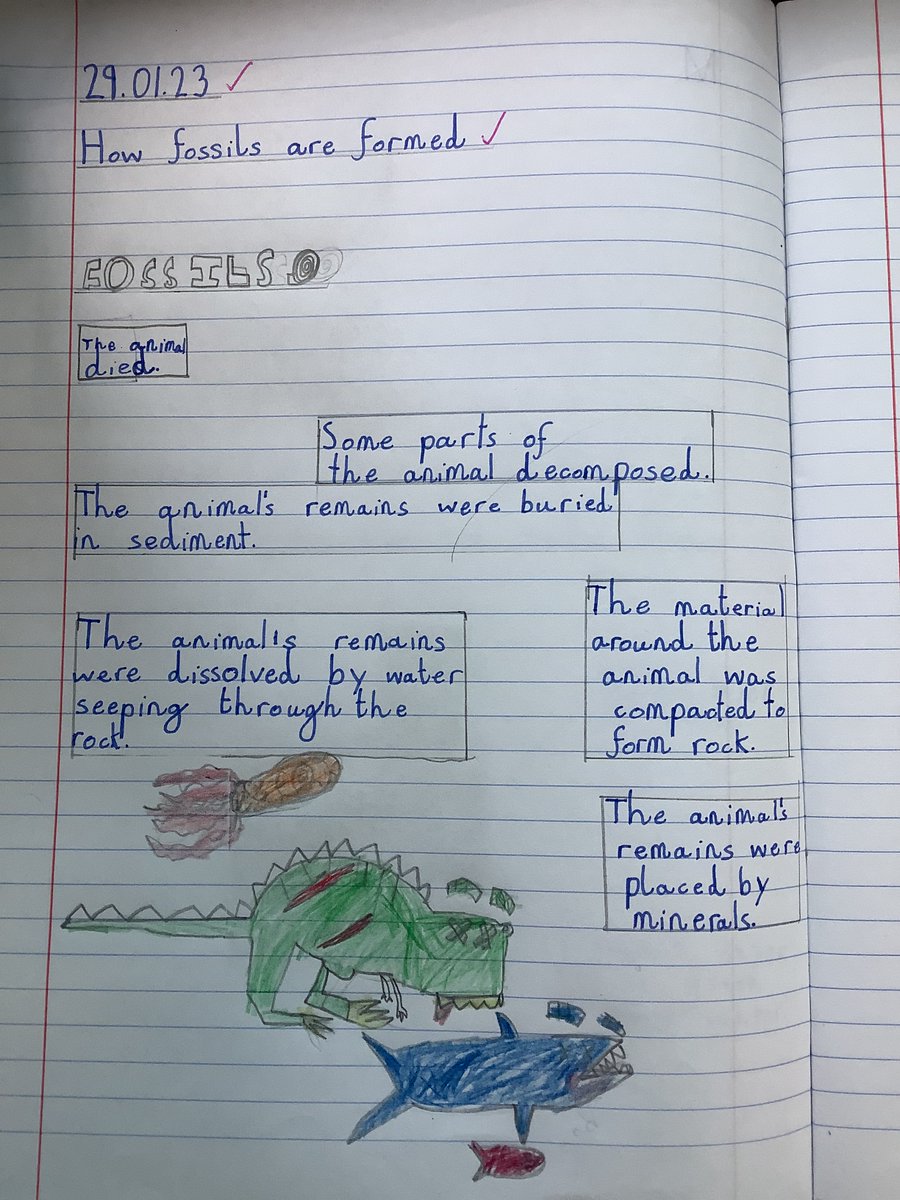 29.01.23
How fossils are formed
FOSSILS
The animal
died.
Some parts of
the animal decomposed.
The animal's remains were buried
in sediment.
The animal's remains
were dissolved by water
seeping through the
rock.
The material
around the
animal was
compacted to
form rock.
The animal's
remains were
placed by
minerals.